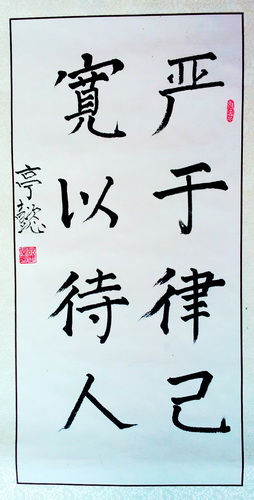 严于律己
寬以待人
亭懿